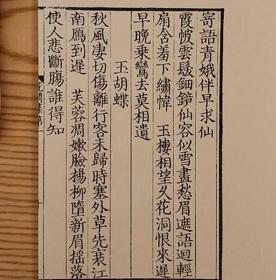 寄語青娥伴早求仙
霞帔雲髮鈿鏡仙容似雪畫愁眉遮語迴輕
扇含羞下繡幃　玉樓相望久花洞恨來遲
早晚乘鸞去莫相遺
玉胡蝶
秋風淒切傷離行客未歸時塞外草先衰江
南鴈到遲　芙蓉凋嫩臉楊柳墮新眉搖落
使人悲斷腸誰得知